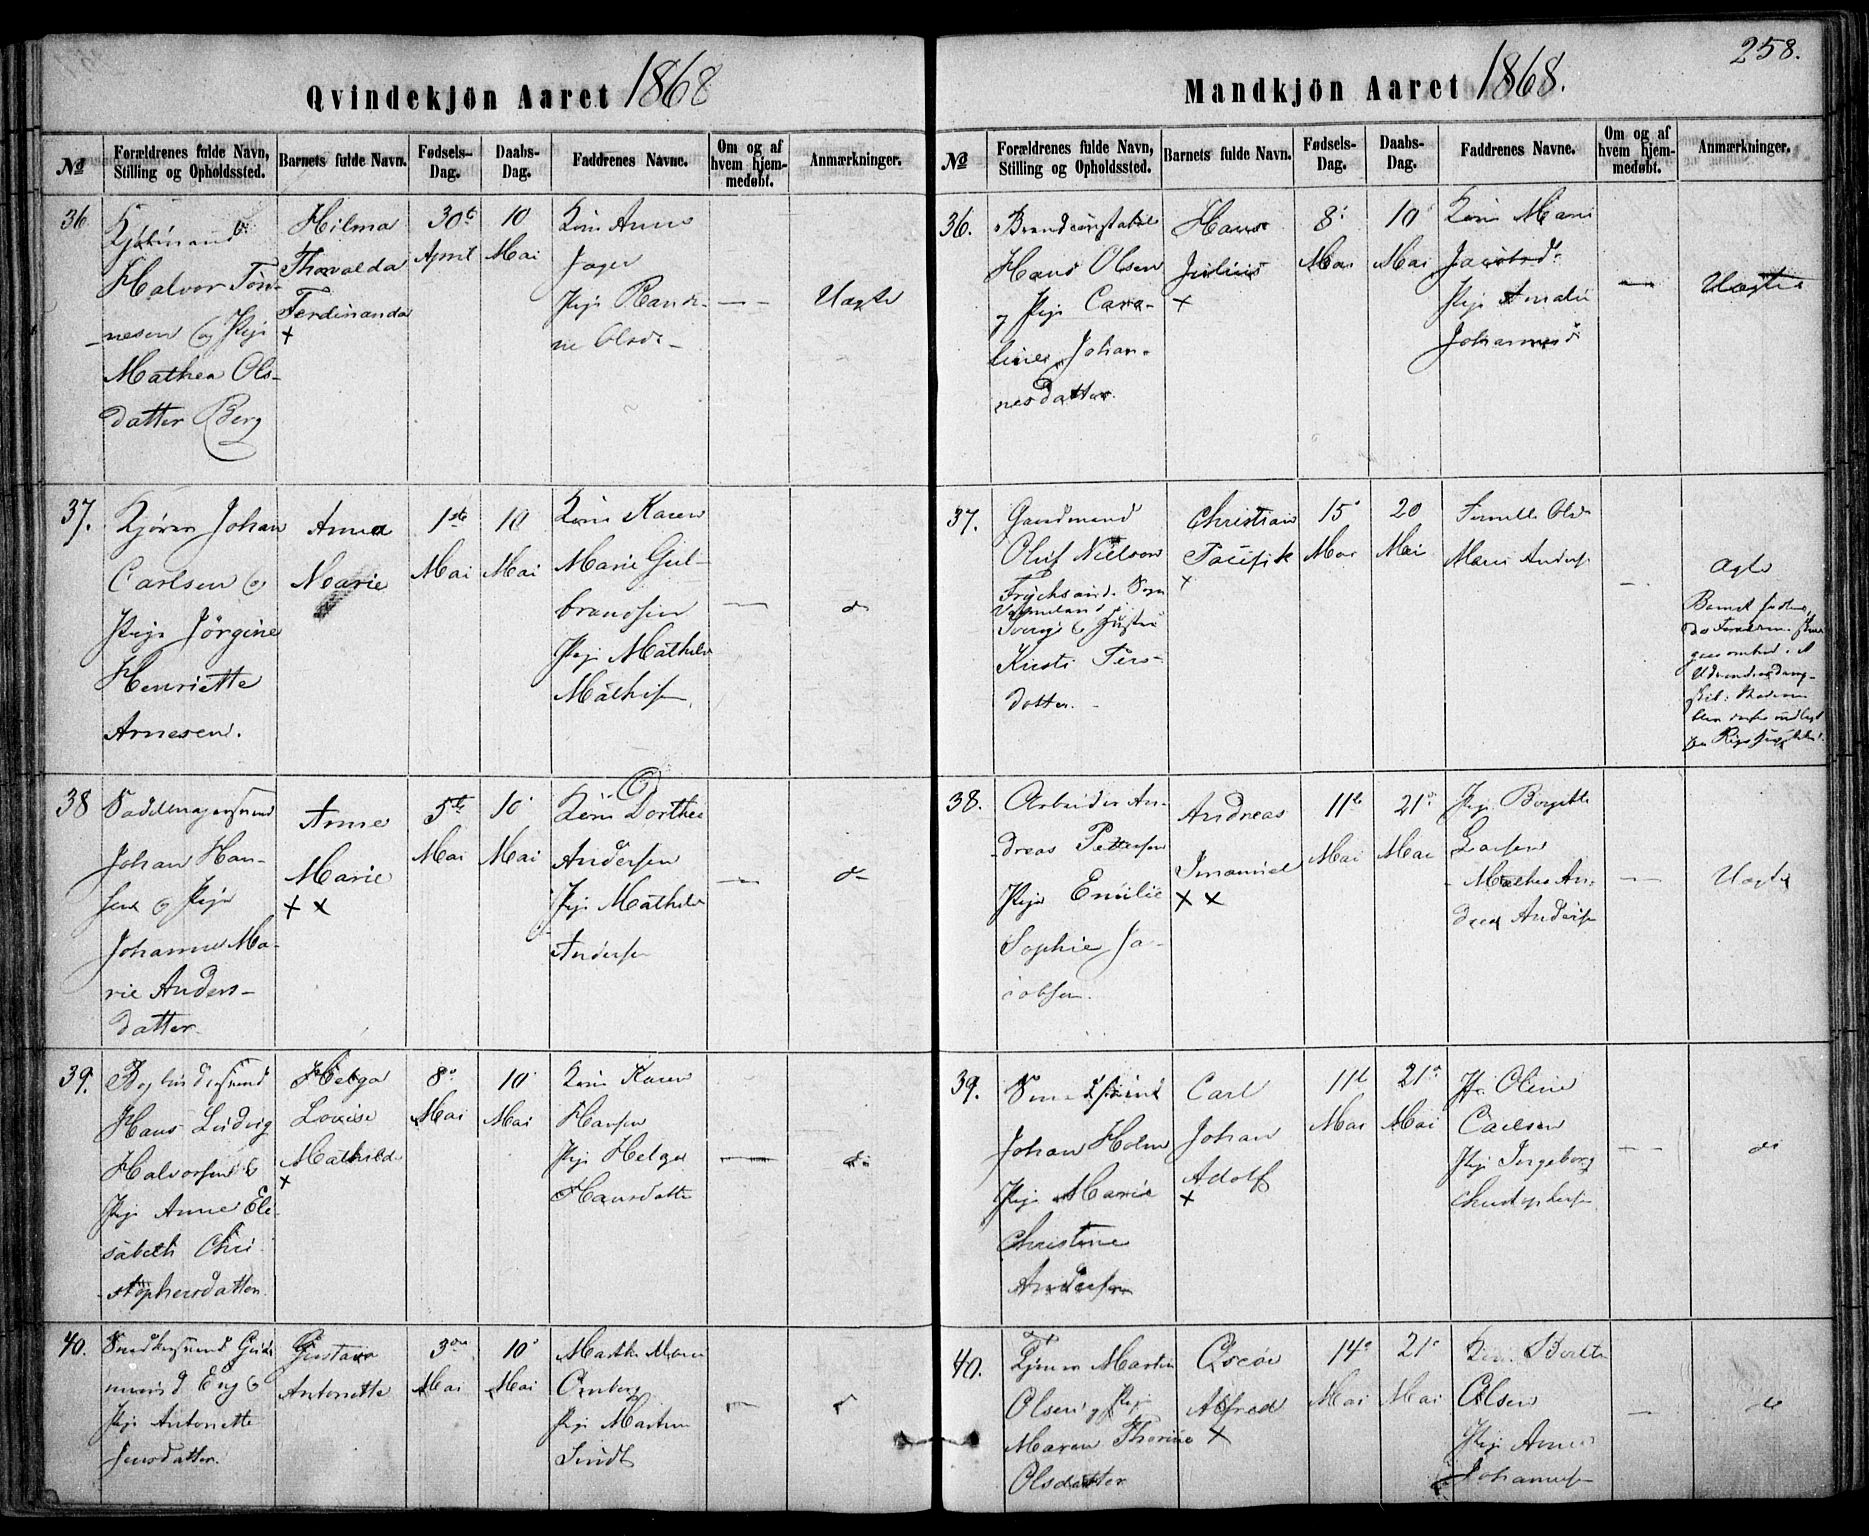 Qvindekjön Aaret 1868
№
Forældrenes fulde Navn, Stilling og Opholdssted.
Barnets fulde Navn.
Fødsels-Dag.
Daabs-Dag.
Faddrenes Navne.
Om og af hvem hjem-medøbt.
Anmærkninger.
36
Halvor Tön-
nesen og Pige
Mathea Ols-
datter Berg
Hilma
Thorvalda
Ferdinanda
×
30te
April
10
Mai
Kone Anne
Jager
Pige Randi-
ne Olsd.
—
Uægte
37.
Kjörer Johan
Carlsen og
Pige Jörgine
Henriette
Arnesen.
Anna
Marie
1ste
Mai
10
Mai
Kone Karen
Marie Gul-
brandsen
Pige Mathilde
Mathisen
—
do
38
Sadelmagersvend
Johan Han-
sen og Pige
Johanne Ma-
rie Anders-
datter.
Anne
Marie
× ×
5te
Mai
10
Mai
Kone Dorthea
Andersen
Pige Mathilde
Andersen
—
do
39.
Bogbindersvend
Hans Ludvig
Halvorsen og
Pige Anne Eli-
sabeth Chri-
stophersdatter.
Helga
Lovise
Mathilde
×
8
Mai
10
Mai
Kone Karen
Hansen
Pige Helga
Hansdatter
—
do
40.
Snedkersvend Gud-
mund Eng og
Pige Antonette
Jensdatter.
Gustava
Antonette
3die
Mai
10
Mai
Marthe Marie
Pige Martine
Lindt
—
Mandkjön Aaret 1868.
258.
№
Forældrenes fulde Navn, Stilling og Opholdssted.
Barnets fulde Navn.
Fødsels-Dag.
Daabs-Dag.
Faddrenes Navne.
Om og af hvem hjem-medøbt.
Anmærkninger.
36.
Brandconstabel
Hans Olsen
og Pige Caro-
line Johan-
nesdatter.
Hans
Julius
×
8
Mai
10
Mai
Kone Marie
Jacobsd.
Pige Amalie
Johannesd
—
Uægte
37.
Gaardmand
Oluf Nielsen
Sogn
Vermeland
Sverige og Hustru
Kirsti Pers-
datter.
Christian
Pacifik
×
15
Mai
20
Mai
Pernille Olsd
Maren Anders
—
Ægte
Barnet
38.
Arbeider An-
dreas Pettersen
Pige Emilie
Sophie Ja-
cobsen.
Andreas
Imanuel
× ×
11te
Mai
21
Mai
Pige Borgitte
Larsen
Mathea An-
Andersen
—
Uægte
39.
Smedsvend
Johan Holm
Pige Marie
Christine
Andersen
Carl
Johan
Adolf
×
11te
Mai
21
Mai
Oline
Carlsen
Pige Ingeborg
Christophersen
—
do
40.
Martin
Olsen og Pige
Maren Thorine
Olsdatter
Oscar
Alfred
×
14
Mai
21
Mai
Kone Berthe
Olsen
Pige Anne
Johannesen
—
do